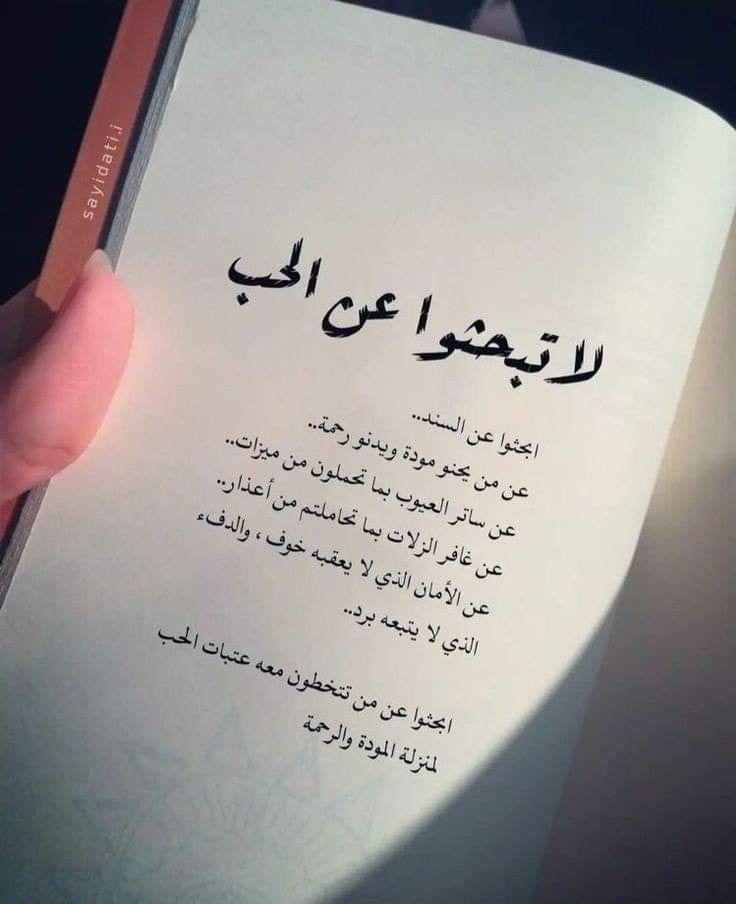 sayidati.i
لا تبحثوا عن الحب
ابحثوا عن السند..
عن من يحنو مودة ويدنو رحمة..
عن ساتر العيوب بما تحملون من ميزات..
عن غافر الزلات بما تحاملتم من أعذار..
عن الأمان الذي لا يعقبه خوف ، والدفء
الذي لا يتبعه برد..
ابحثوا عن من تتخطون معه عتبات الحب
لمنزلة المودة والرحمة